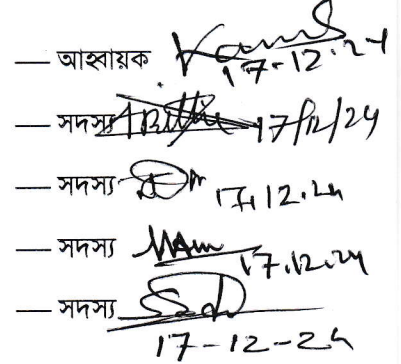 — আহ্বায়ক
17-12-24
— সদস্য 17/12/24
— সদস্য 17.12.24
— সদস্য 17.12.24
— সদস্য
17-12-24